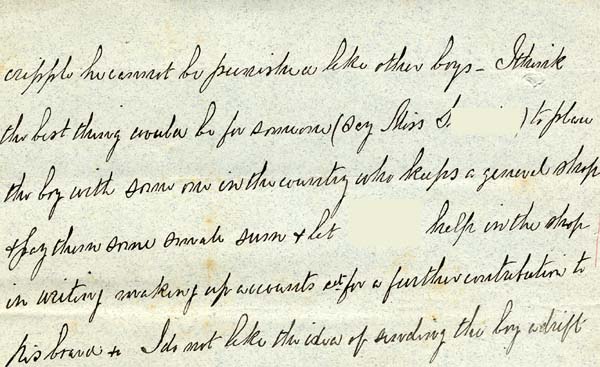 cripple he cannot be punished like other boys - I think
the best thing would be for someone (say Miss S. ) to place
the boy with some one in the country who keeps a general shop
& pay them some small sum & let help in the shop
in writing making up accounts etc for a further contribution to
his board & I do not like the idea of sending the boy adrift